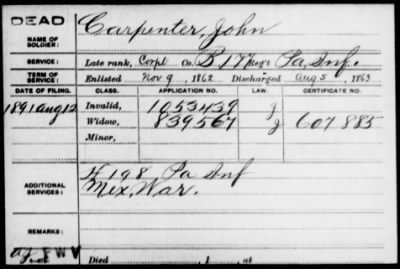 DEAD
NAME OF SOLDIER: Carpenter, John
SERVICE: Late rank, Corpl Co. B, 177 Reg't Pa. Inf.
TERM OF SERVICE: Enlisted Nov 9, 1862 Discharged Aug 5, 1863
DATE OF FILING. CLASS. APPLICATION NO. LAW. CERTIFICATE NO.
1891 Aug 12 Invalid, 1053439 J
Widow, 839567 J 607885
Minor,
ADDITIONAL SERVICES: H 198, Pa Inf
Mex. War.
REMARKS:
Died , at